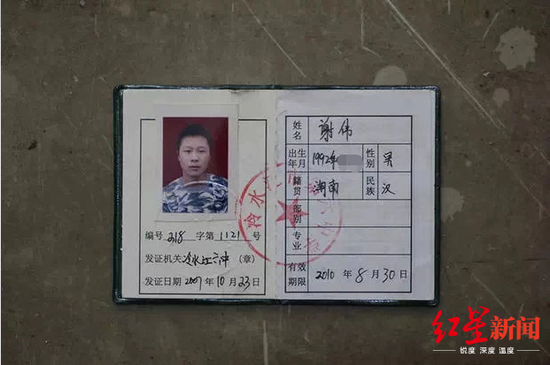 编号 218 字第 1121 号
发证机关 冷水江六中 (章)
发证日期 2007 年 10 月 23 日
姓名 谢伟
出生年月 1992年 性别 男
籍贯 湖南 民族 汉
部别
专业
有效期限 2010 年 8 月 30 日
冷水
红星新闻
锐度 深度 温度